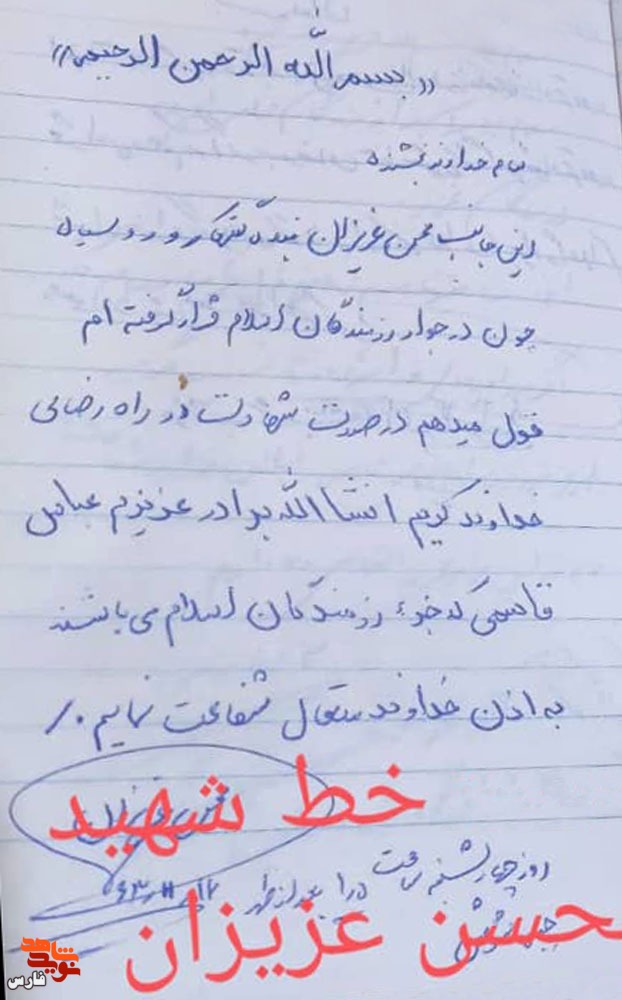 «بسم الله الرحمن الرحیم»
بنام خداوند بخشنده
اینجانب محسن عزیزان بنده گنهکار و رو سیاه
چون در جوار رزمندگان اسلام قرار گرفته ام
قول میدهم در صورت شهادت در راه رضای
خداوند کریم انشاالله برادر عزیزم عباس
قاسمی که جزء رزمندگان اسلام می باشند
به اذن خداوند متعال شفاعت نمایم ./
خط شهید
روز چهارشنبه ساعت
بعد از ظهر
محسن عزیزان
نوید شاهد
فارس